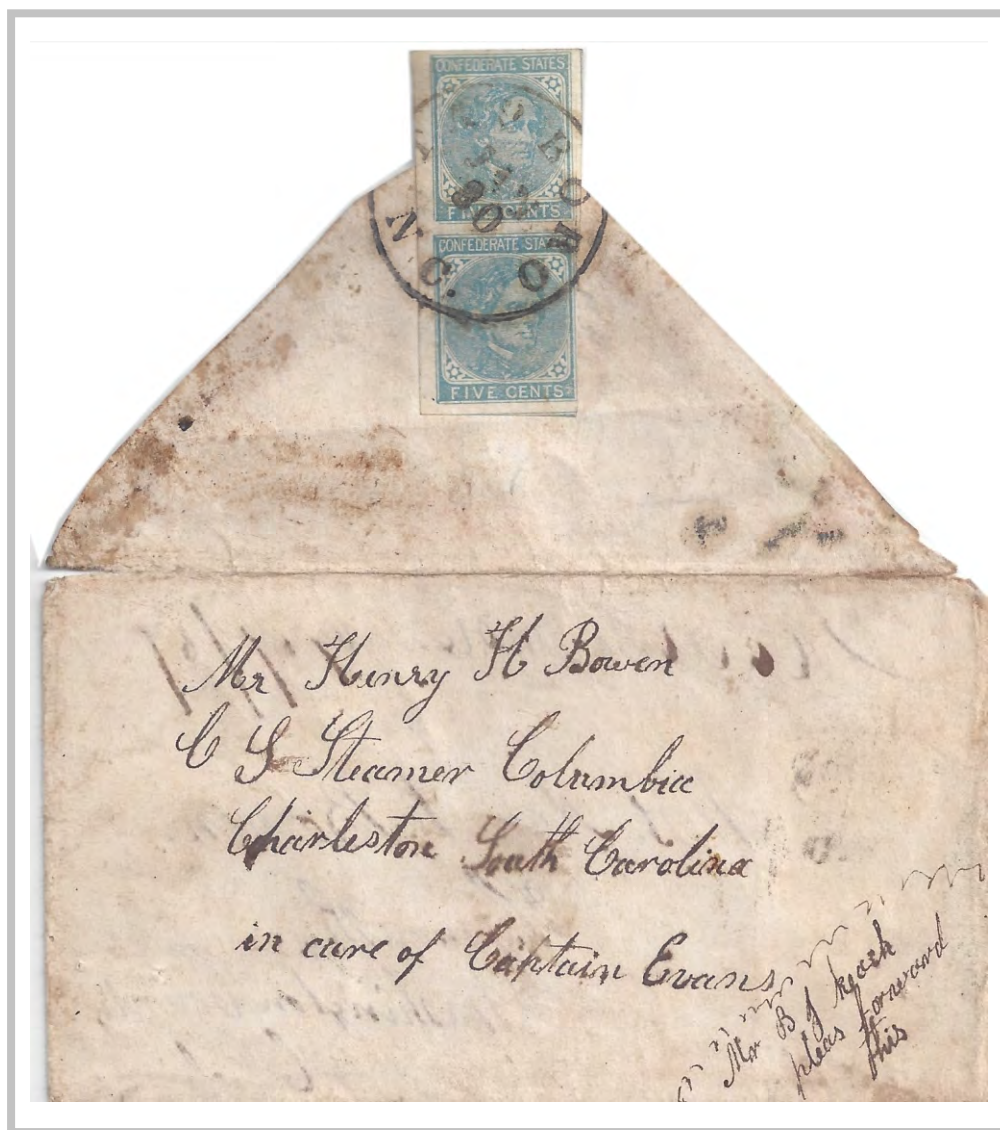 CONFEDERATE STATES
FIVE CENTS
CONFEDERATE STATES
FIVE CENTS
BORO
N.C.
JAN
30
Mr Henry H Bowen
C S Steamer Columbia
Charleston South Carolina
in care of Captain Evans
Mr B J Keach
pleas forward
this